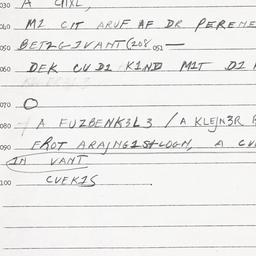 030 A
040 MI CIT ARUF AF DR PEREME
050 BETZGIVANT (208 051 —
060 DEK CUDI KIND MIT DI
070 O
080 A FUZBENK3L3 / A KLEJN3R
090 FROT ARAJNGIStLOGN, A CV
IN VANT
100 CVEKIS